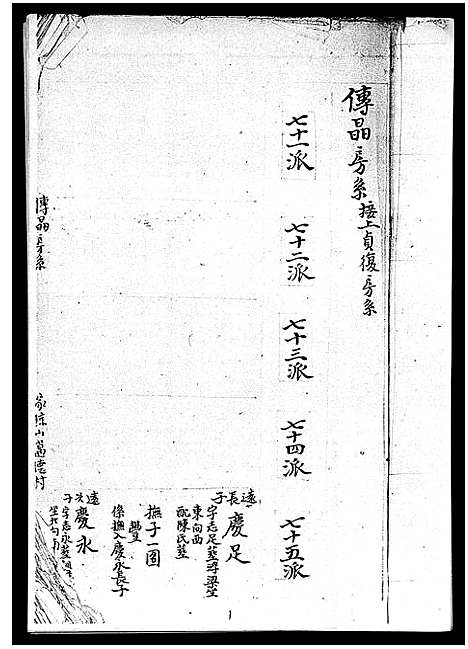 傳晶房系接上貞復房系
七十一派
七十二派
七十三派
七十四派
七十五派
遠長子
慶足
字志足葬浮梁坐
東向西
配陳氏葬
撫子一圓
豐
係撫入慶永長子
遠次子
慶永
字志永葬
傳晶房系